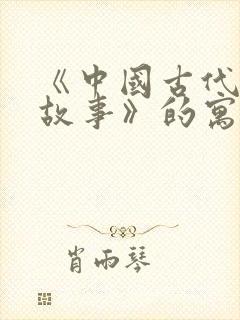 《中國古代
故事》的寓
肖雨琴